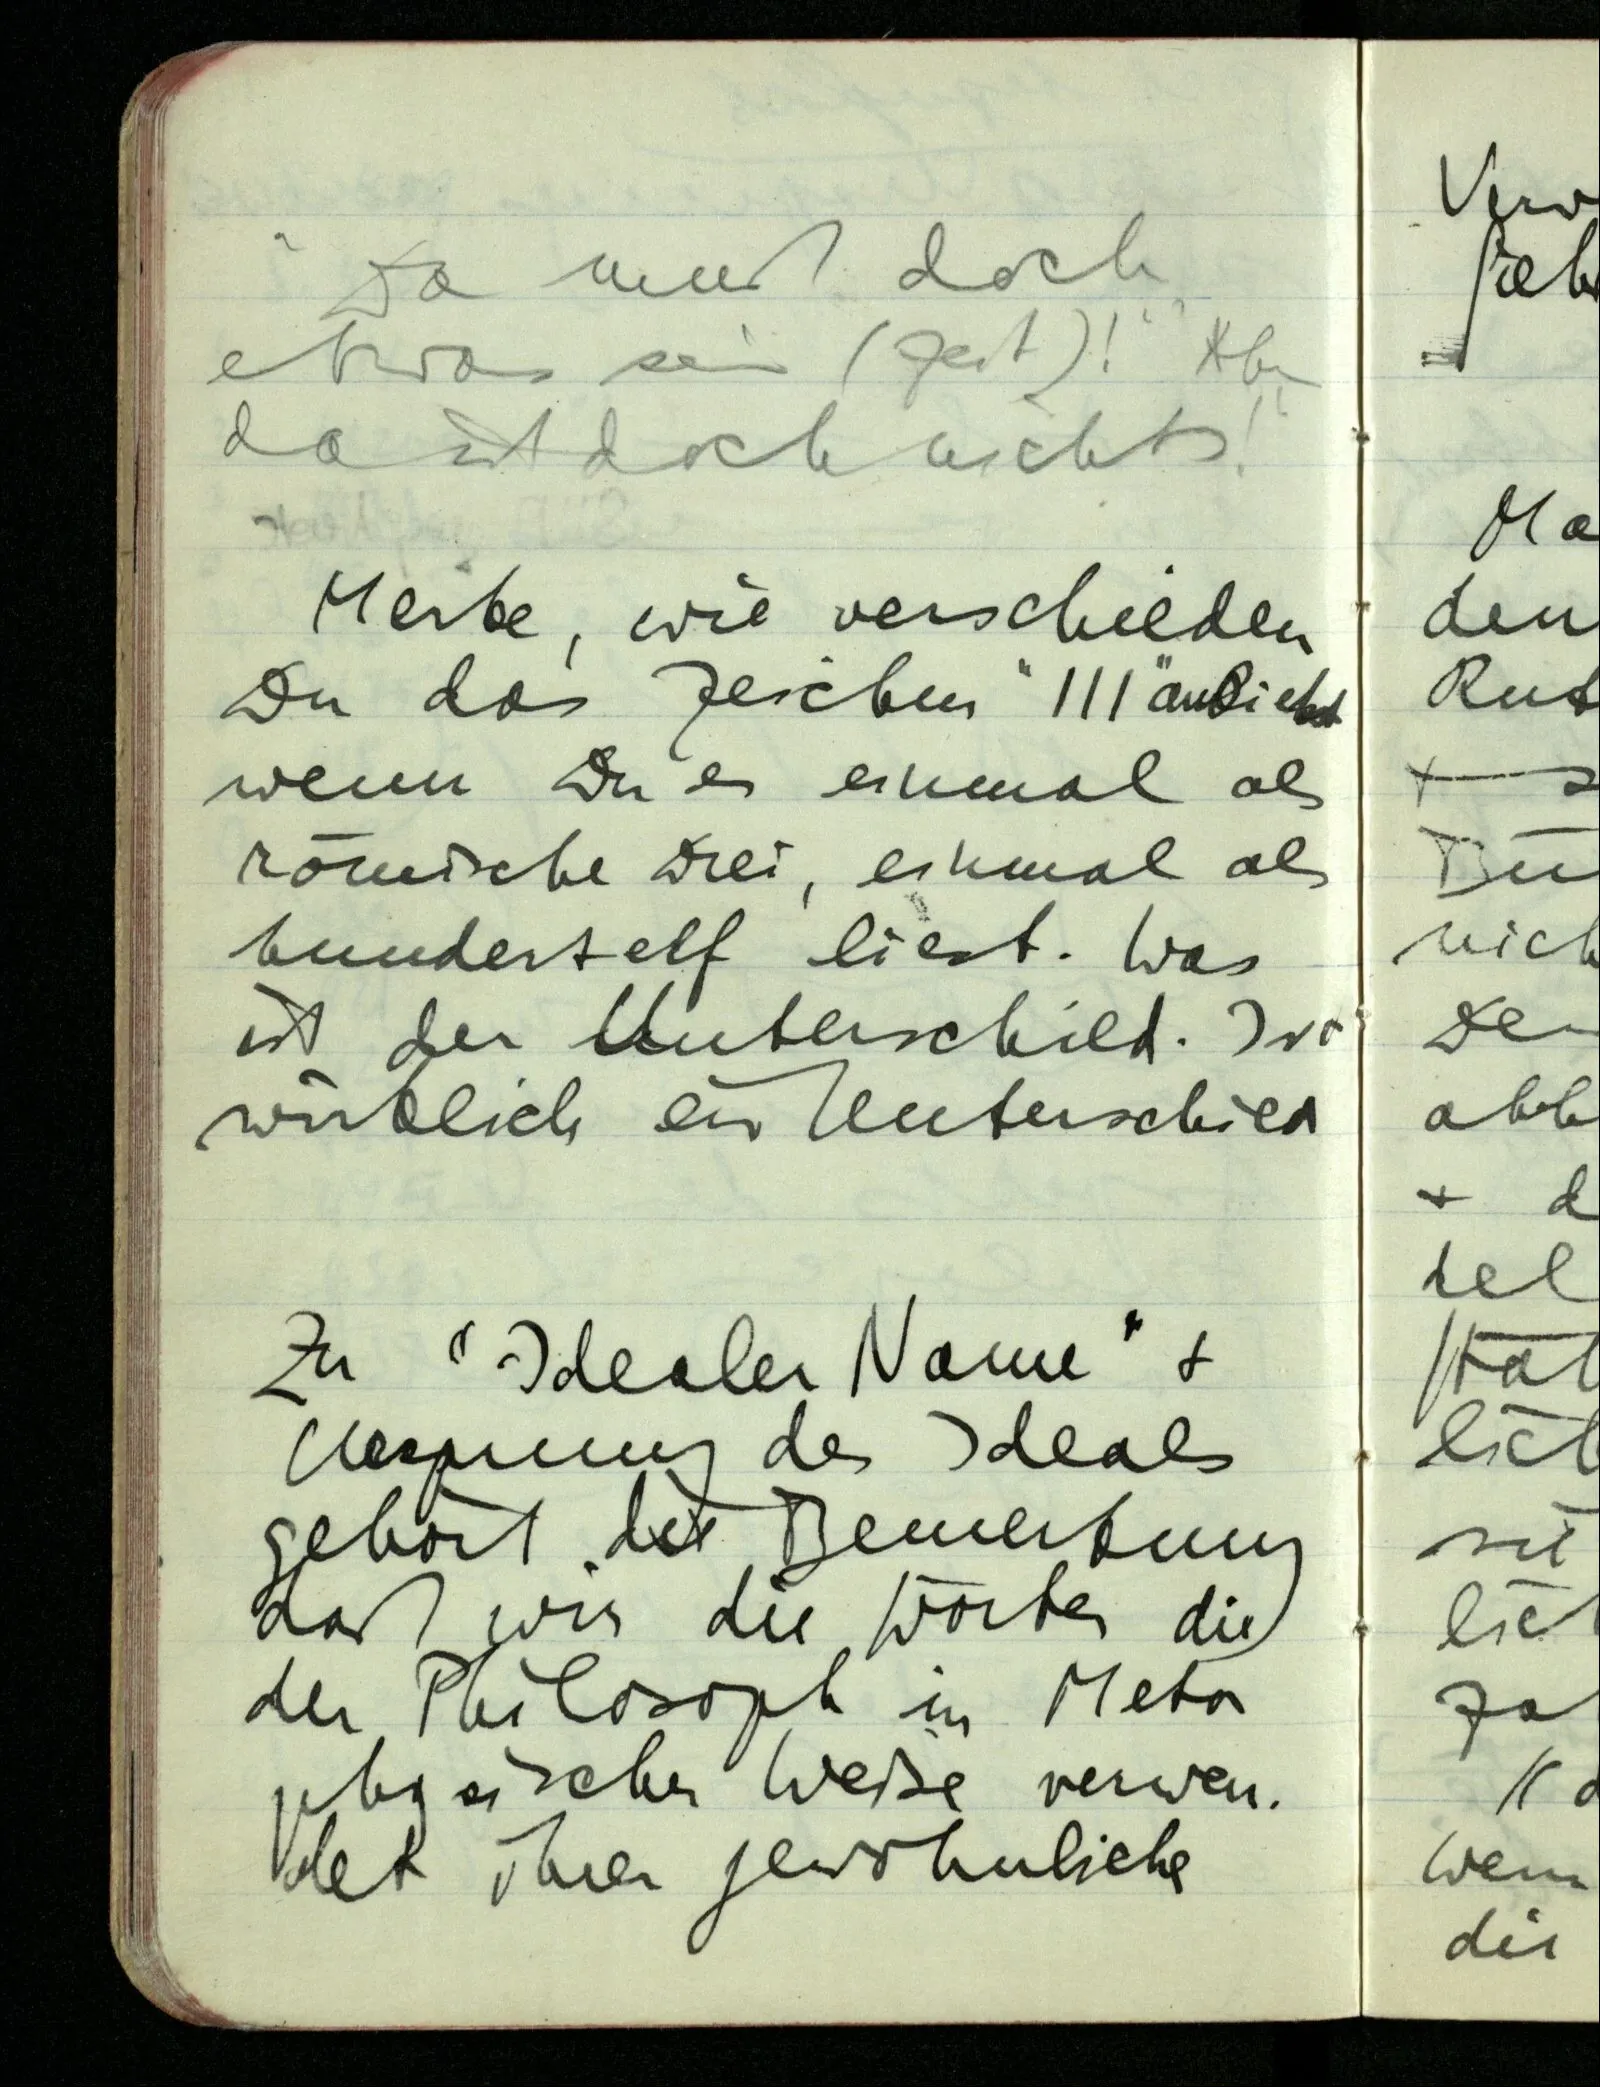 "Da muß doch
etwas sein (Zeit)!" "Aber
da ist doch nichts!"
Merke, wie verschieden
Du das Zeichen "III" ansiehst
wenn Du es einmal als
römische Drei, einmal als
hundertelf liest. Was
ist der Unterschied. Ist
wirklich ein Unterschied
Zu "Idealer Name" +
Ursprung des Ideals
gehört die Bemerkung
daß wir die Wörter die
der Philosoph in Meta
physischer Weise verwen-
det ihrer gewöhnliche
Verw
Ma
den
+
nich
+ d
lich
lich
wenn
die